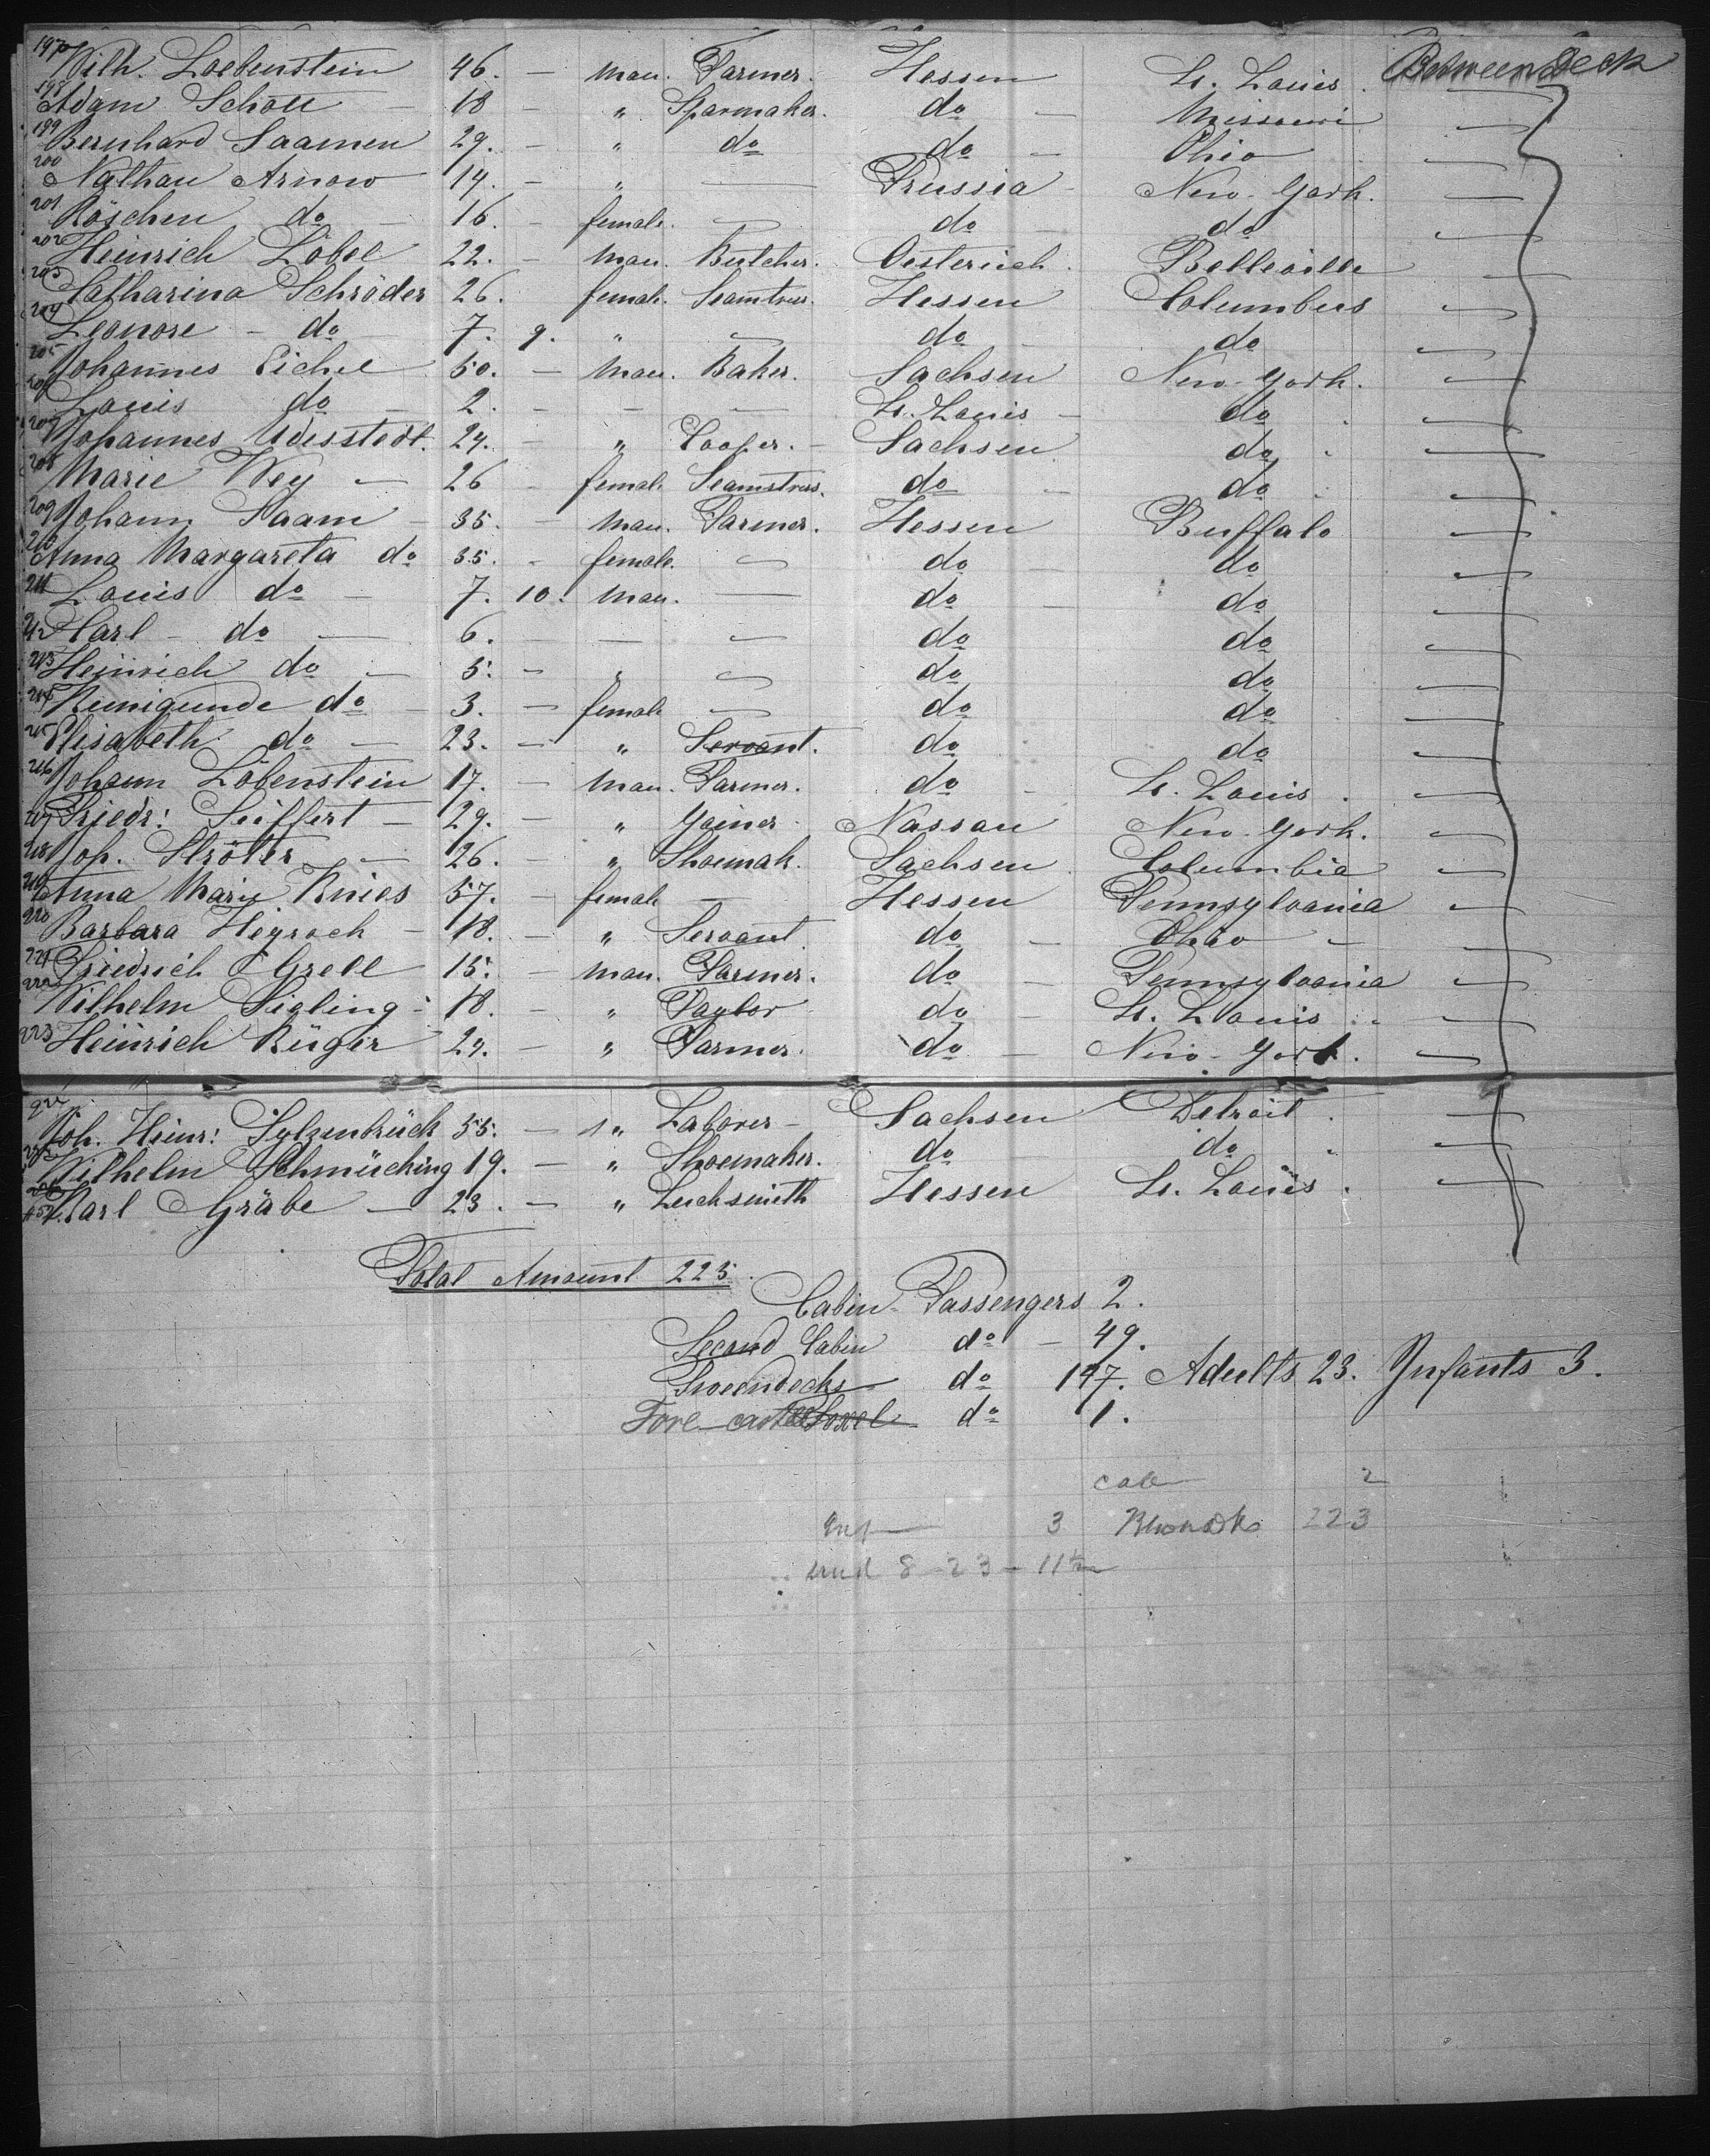 197 Wilh. Loebenstein 46. — man. Farmer. Hessen St. Louis. Between Deck
198 Adam Scholl — 18 — " Sparmaker. do — Missouri —
199 Bernhard Saamen 29. — " do do — Ohio —
200 Nathan Arnow 14. — " — Prussia — New-York. —
201 Röschen do — 16. — female. — do — do —
202 Heinrich Löbel 22. — man. Butcher. Oesterich. Belleville —
203 Catharina Schröder 26. female. Seamtress. Hessen Columbus —
204 Leonore — do — 7. 9. " — do — do —
205 Johannes Eichel 50. — man. Baker. Sachsen New-York. —
206 Louis do — 2. — — — St. Louis — do —
207 Johannes Udesstedt. 24. — " Cooper. — Sachsen do —
208 Marie Wey — 26 — female Seamstress. do — do —
209 Johann Saam — 35. — man. Farmer. Hessen Buffalo —
210 Anna Margareta do 35. — female. — do do —
211 Louis do — 7. 10. man. — do — do —
212 Carl — do — 6. — — do do —
213 Heinrich do — 5. — " — do do —
214 Kunigunde do — 3. — female — do do —
215 Elisabeth do — 23. — " Servant. do do —
216 Johann Löbenstein 17. — man. Farmer. do — St. Louis. —
217 Friedr: Seiffert — 29. — " Yoiner — Nassau New-York. —
218 Joh. Ströter — 26. — " Shoemak. Sachsen Columbia —
219 Anna Marie Knies 57. — female — Hessen Pennsylvania —
220 Barbara Heyroch — 18. — " Servant. do — Ohio —
221 Friedrich Grell 15. — man. Farmer. do — Pennsylvania —
222 Wilhelm Sigling — 18. — " Taylor do — St. Louis. —
223 Heinrich Rüger 24. — " Farmer. do — New-York. —
224 Joh. Heinr: Sylzenbrück 55. — " Laborer — Sachsen Detroit. —
225 Wilhelm Schmücking 19. — " Shoemaker. do — do. —
Karl Gräbe — 23. — " Luchsmith Hessen St. Louis. —
Total Amount 225.
Cabin-Passengers 2.
Second Cabin do — 49.
Tweendecks do 147. Adults 23. Infants 3.
Fore-castle do 1.
cab 2
Inf — 3 223
und 8 — 23 — 11